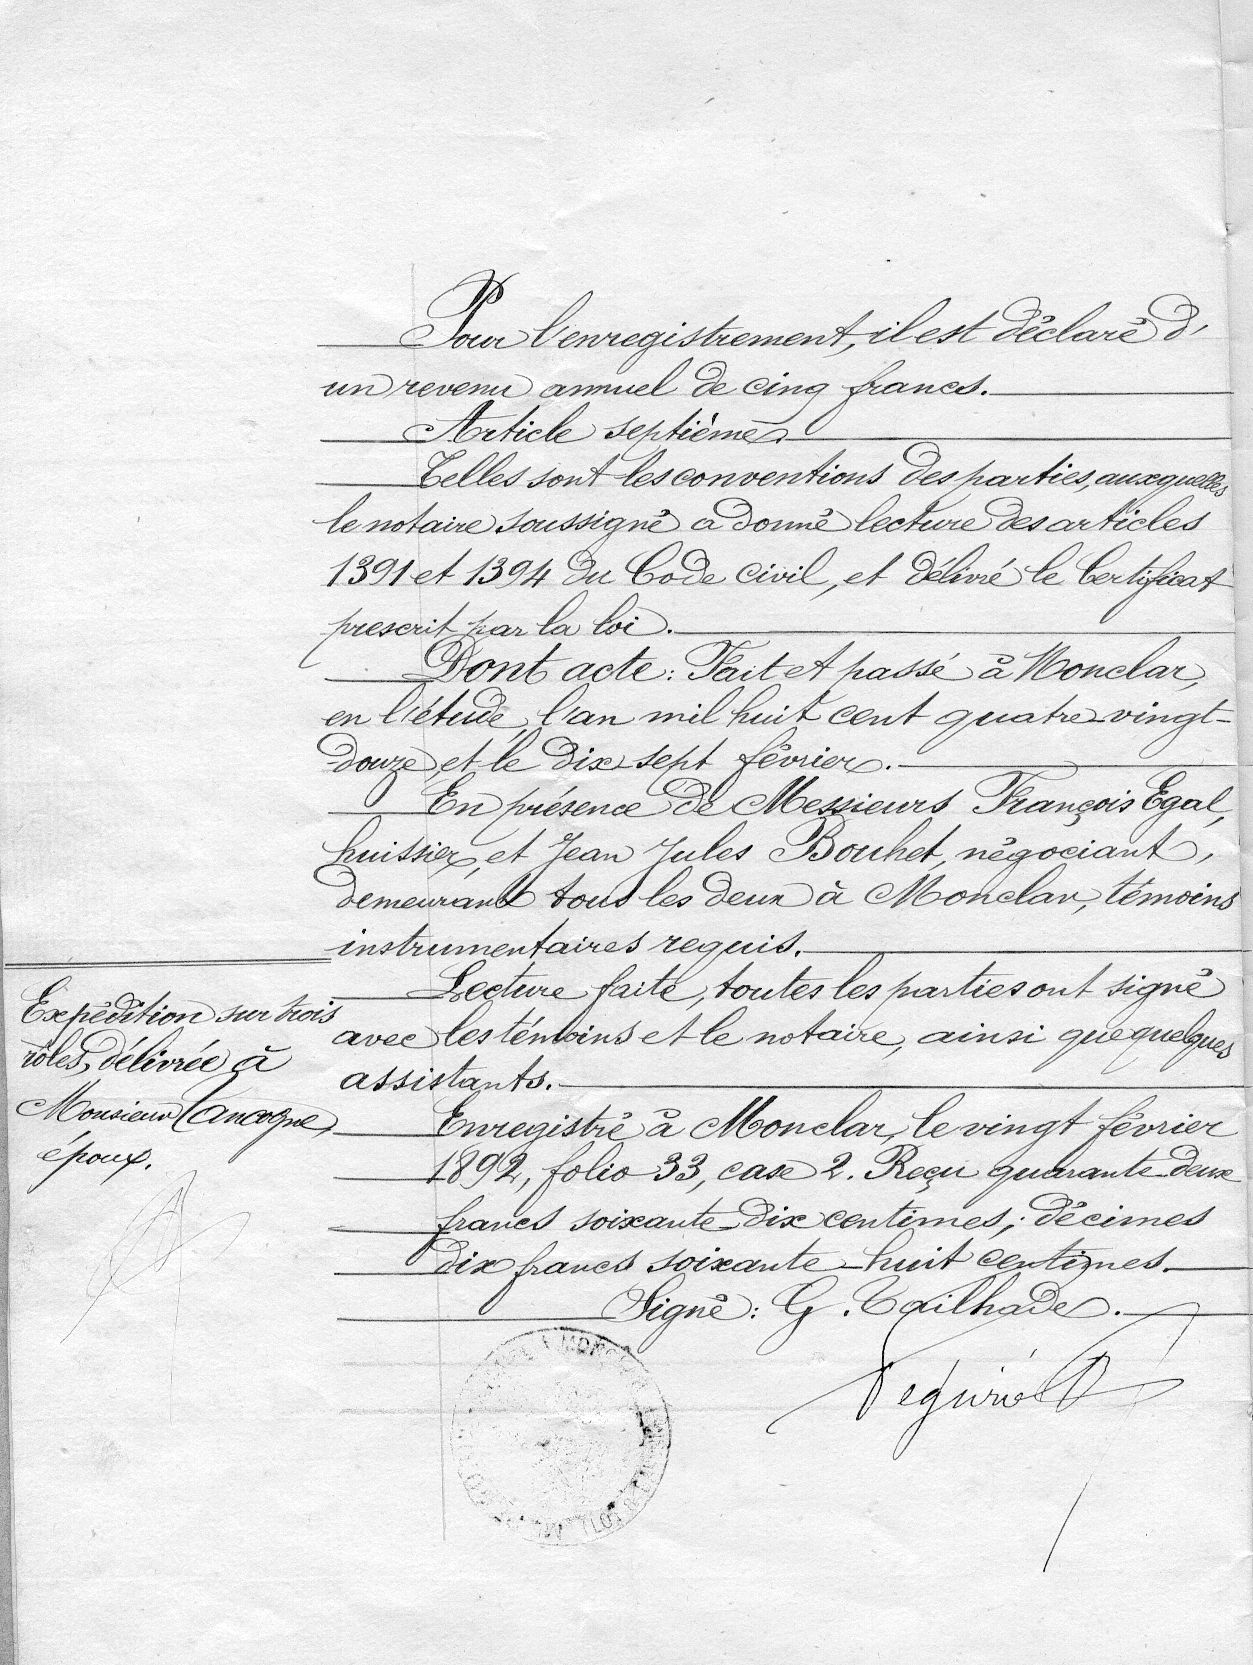 Pour l'enregistrement, il est déclaré d'
un revenu annuel de cinq francs.
Article septième
Telles sont les conventions des parties, auxquelles
le notaire soussigné a donné lecture des articles
1391 et 1394 du Code civil, et délivré le Certificat
prescrit par la loi.
Dont acte : Fait et passé à Monclar,
en l'étude, l'an mil huit cent quatre-vingt-
douze et le dix-sept février.
En présence de Messieurs François Egal,
huissier, et Jean Jules Bouhet, négociant,
demeurant tous les deux à Monclar, témoins
instrumentaires requis.
Lecture faite, toutes les parties ont signé
avec les témoins et le notaire, ainsi que quelques
assistants.
Enregistré à Monclar, le vingt février
1892, folio 33, case 2. Reçu quarante-deux
francs soixante-dix centimes ; décimes
dix francs soixante-huit centimes.
Signé : G. Tailhade.
Expédition sur trois
rôles, délivrée à
Monsieur Cancogne,
époux.